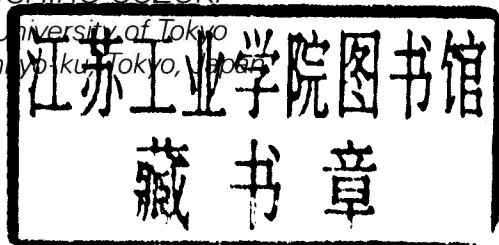 University of Tokyo
Tokyo, Japan
江苏工业学院图书馆
藏书章